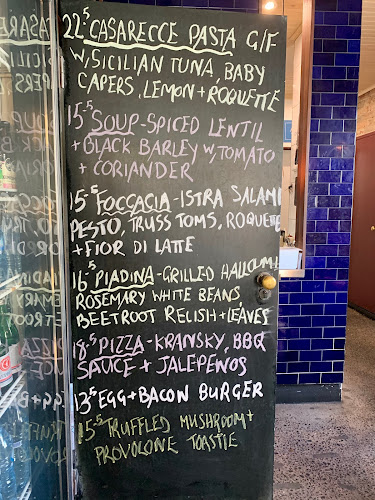 22.5 CASARECCE PASTA G/F
W, SICILIAN TUNA, BABY
CAPERS, LEMON + ROQUETTE
15.5 SOUP - SPICED LENTIL
+ BLACK BARLEY W, TOMATO
+ CORIANDER
15.5 FOCCACIA - ISTRA SALAMI
PESTO, TRUSS TOMS, ROQUETTE
+ FIOR DI LATTE
16.5 PIADINA - GRILLED HALLOUMI +
ROSEMARY WHITE BEANS,
BEETROOT RELISH + LEAVES
18.5 PIZZA - KRANSKY, BBQ
SAUCE + JALEPENOS
13.5 EGG + BACON BURGER
15.5 TRUFFLED MUSHROOM +
PROVOLONE TOASTIE